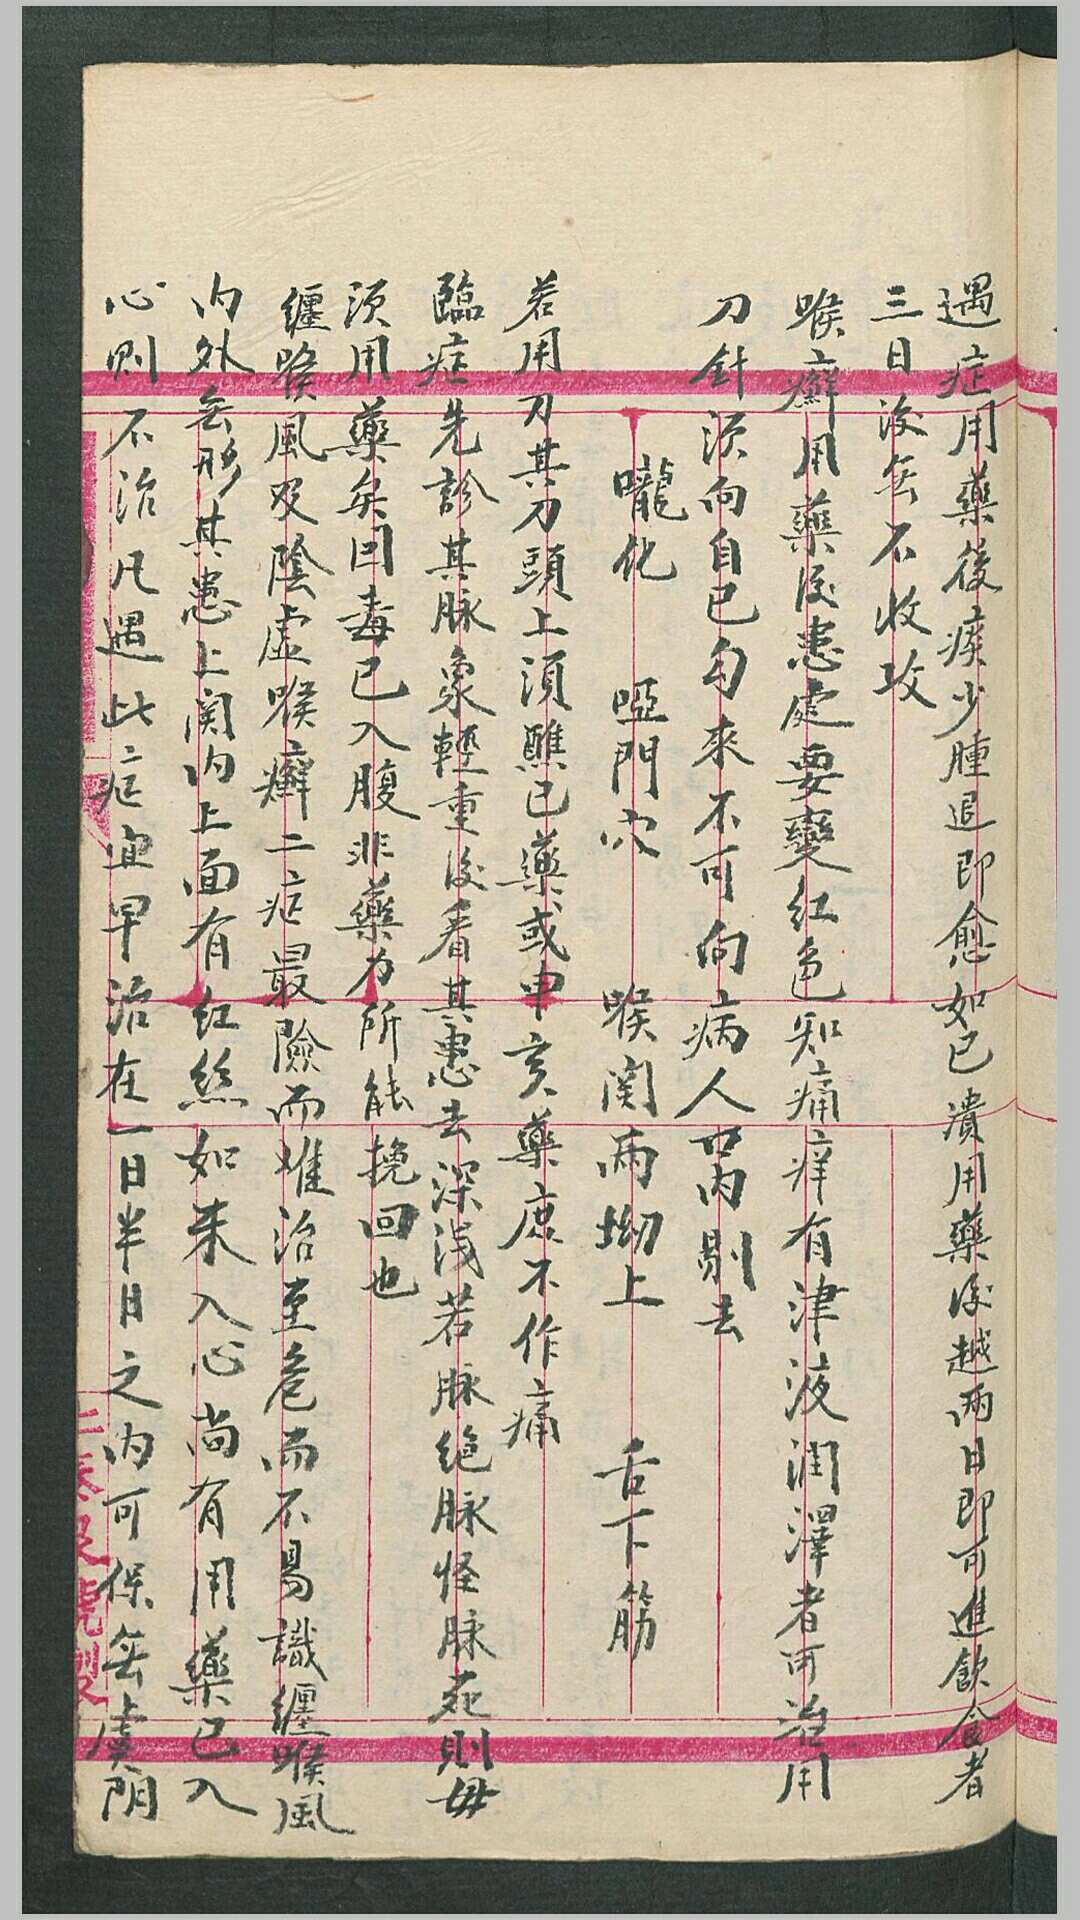 遇症用藥後痰少腫退即愈如已潰用藥後越兩日即可進飲食者
三日後無不收攻
喉癬用藥後患處要變紅色知痛痒有津液潤澤者可治用
刀針須向自己勾來不可向病人口內剔去
嚨化 啞門穴 喉関両坳上 舌下筋
若用刀其刀頭上須醮已藥或申亥藥庶不作痛
臨症先診其脉象輕重後看其患去深淺若脉絕脉怪脉死則毋
須用藥矣因毒已入腹非藥力所能挽回也
纏喉風及陰虛喉癬二症最險而难治至危而不易識纏喉風
內外無形其患上関內上面有红絲如未入心尚有用藥已入
心則不治凡遇此症宜早治在一日半日之內可保無虞陰